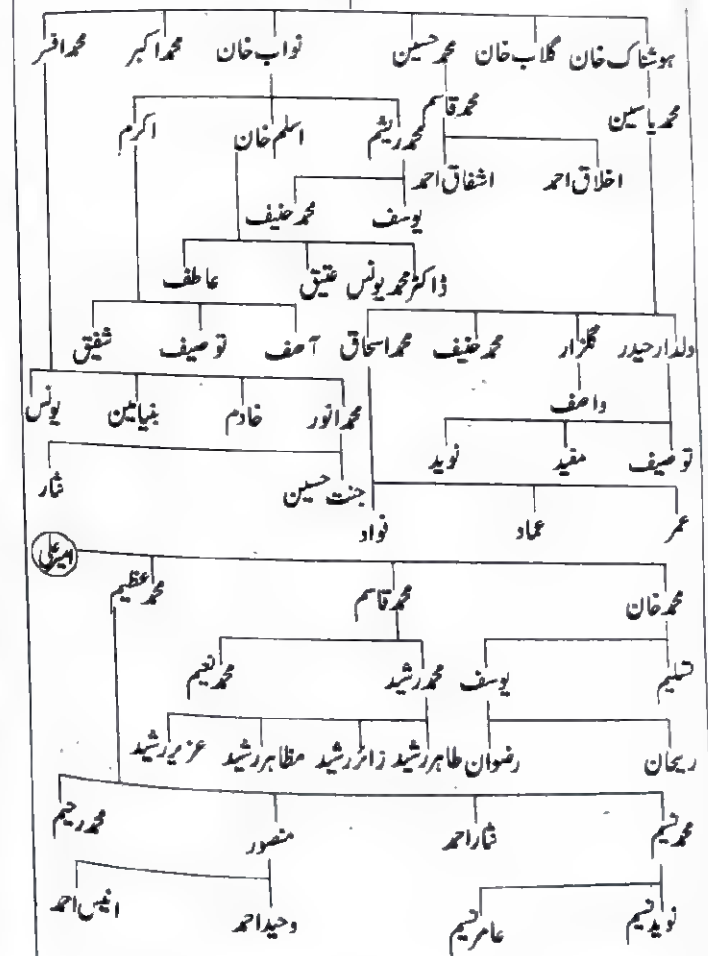 ہوشناک خان گلاب خان محمد حسین نواب خان محمد اکبر محمد افسر
محمد یاسین محمد قاسم محمد ریشم اسلم خان اکرم
اخلاق احمد اشفاق احمد یوسف محمد حنیف
ڈاکٹر محمد یونس عتیق عاطف
دلدار حیدر گلزار محمد حنیف محمد اسحاق آصف توصیف شفیق
واصف محمد انور خادم بنیامین یونس
توصیف مفید نوید جنت حسین نثار
عمر عماد نواد
امیر علی
محمد خان محمد قاسم محمد عظیم
تسلیم یوسف محمد رشید محمد نعیم
ریحان رضوان طاہر رشید زائر رشید مظاہر رشید عزیر رشید
محمد نسیم نثار احمد منصور محمد رحیم
نوید نسیم عامر نسیم وحید احمد انیس احمد